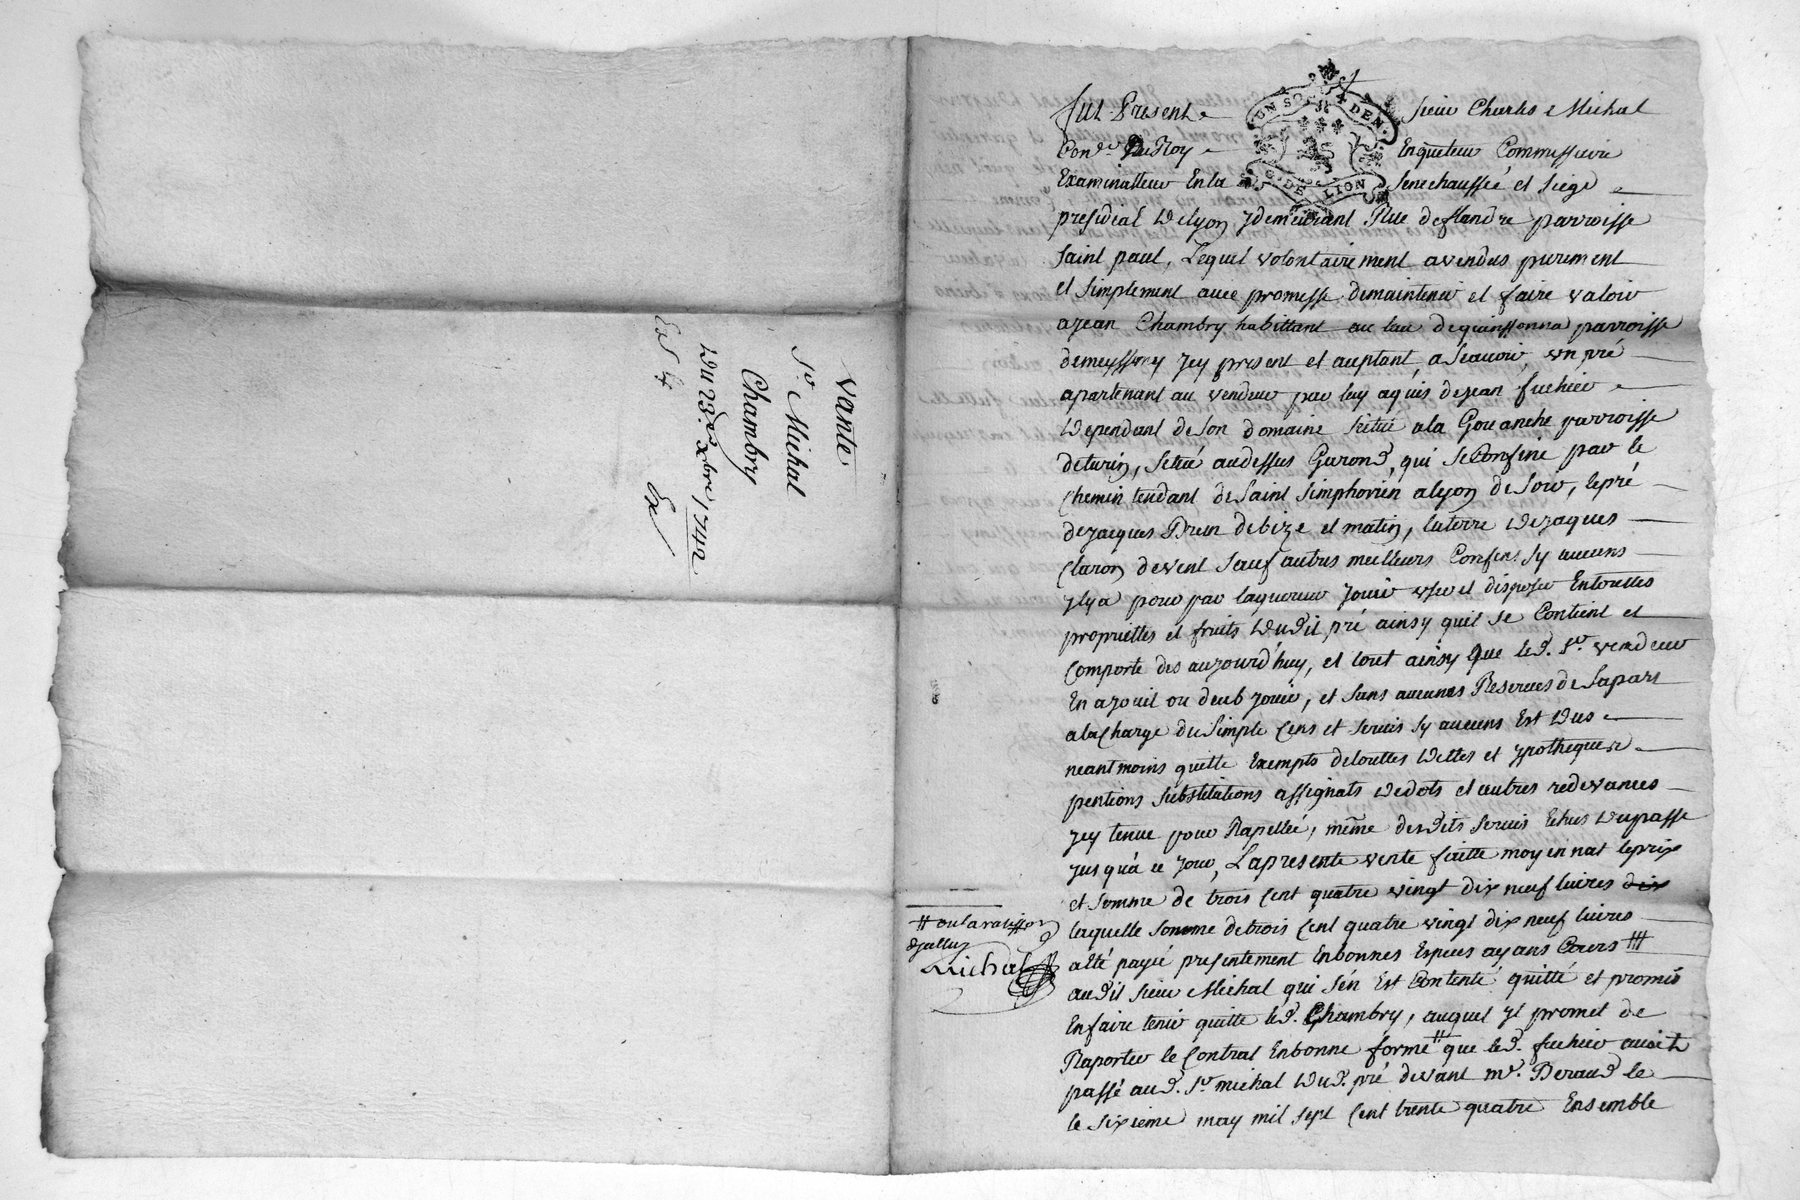 Vante
Sr Michal
Chambry
Du 23e xbre 1742
Ex
UN SOL 4 DEN.
G. DE LION
fut Present sieur Charles Michal
Con.er Du Roy Enqueteur Commissaire
Examinatteur En la Senechaussée et siege
presidial De lyon y demeurant Rue de flandre parroisse
saint paul, Lequel volontairement a vendus purement
et simplement avec promesse de maintenir et faire valoir
a jean Chambry habittant au lieu de quinssonna parroisse
de meyssery Jcy present et aceptant, a Scauoir, un pré
apartenant au vendeur par luy aquis de jean fuchier
Dependant de son domaine scitué a la Gouanche parroisse
de turin, scitué au dessus Garond, qui se Confine par le
Chemin tendant de saint simphorien a lyon de soir, le pré
de jacques Brun de bize et matin, la terre De jaques
Claron de vent sauf autres meilleurs Confins sy aucuns
Jl y a pour par laquereur Jouir user et disposer En touttes
propriettes et fruits Dudit pré ainsy quil se Contient et
Comporte des aujourd'huy, et tout ainsy que led. Sr. vendeur
En a jouit ou deub jouir, et sans aucunes Reserues de sa part
a la Charge du simple Cens et seruis sy aucuns Est Dus
neantmoins quitte Exempts de touttes Dettes et ypotheques
pentions substitutions assignats De dots et autres redevances
Jcy tenue pour Rapellée, même desdits seruis Echus Du passe
jusqu'a ce jour, La presente vente faitte moyennat le prix
et somme de trois Cent quatre vingt dix neuf liures dix
laquelle somme de trois Cent quatre vingt dix neuf liures
a été payé presentement En bonnes Especes ayans Cours #
audit sieur Michal qui s'en Est Contenté quitté et promis
En faire tenir quitte led. Chambry, auquel Jl promet de
Raporter le Contrat En bonne forme # que led. fuchier auoit
passé aud. Sr michal Dud. pré devant me. Beraud le
le sixieme may mil sept Cent trente quatre Ensemble
# ou la ratiffion
Michal